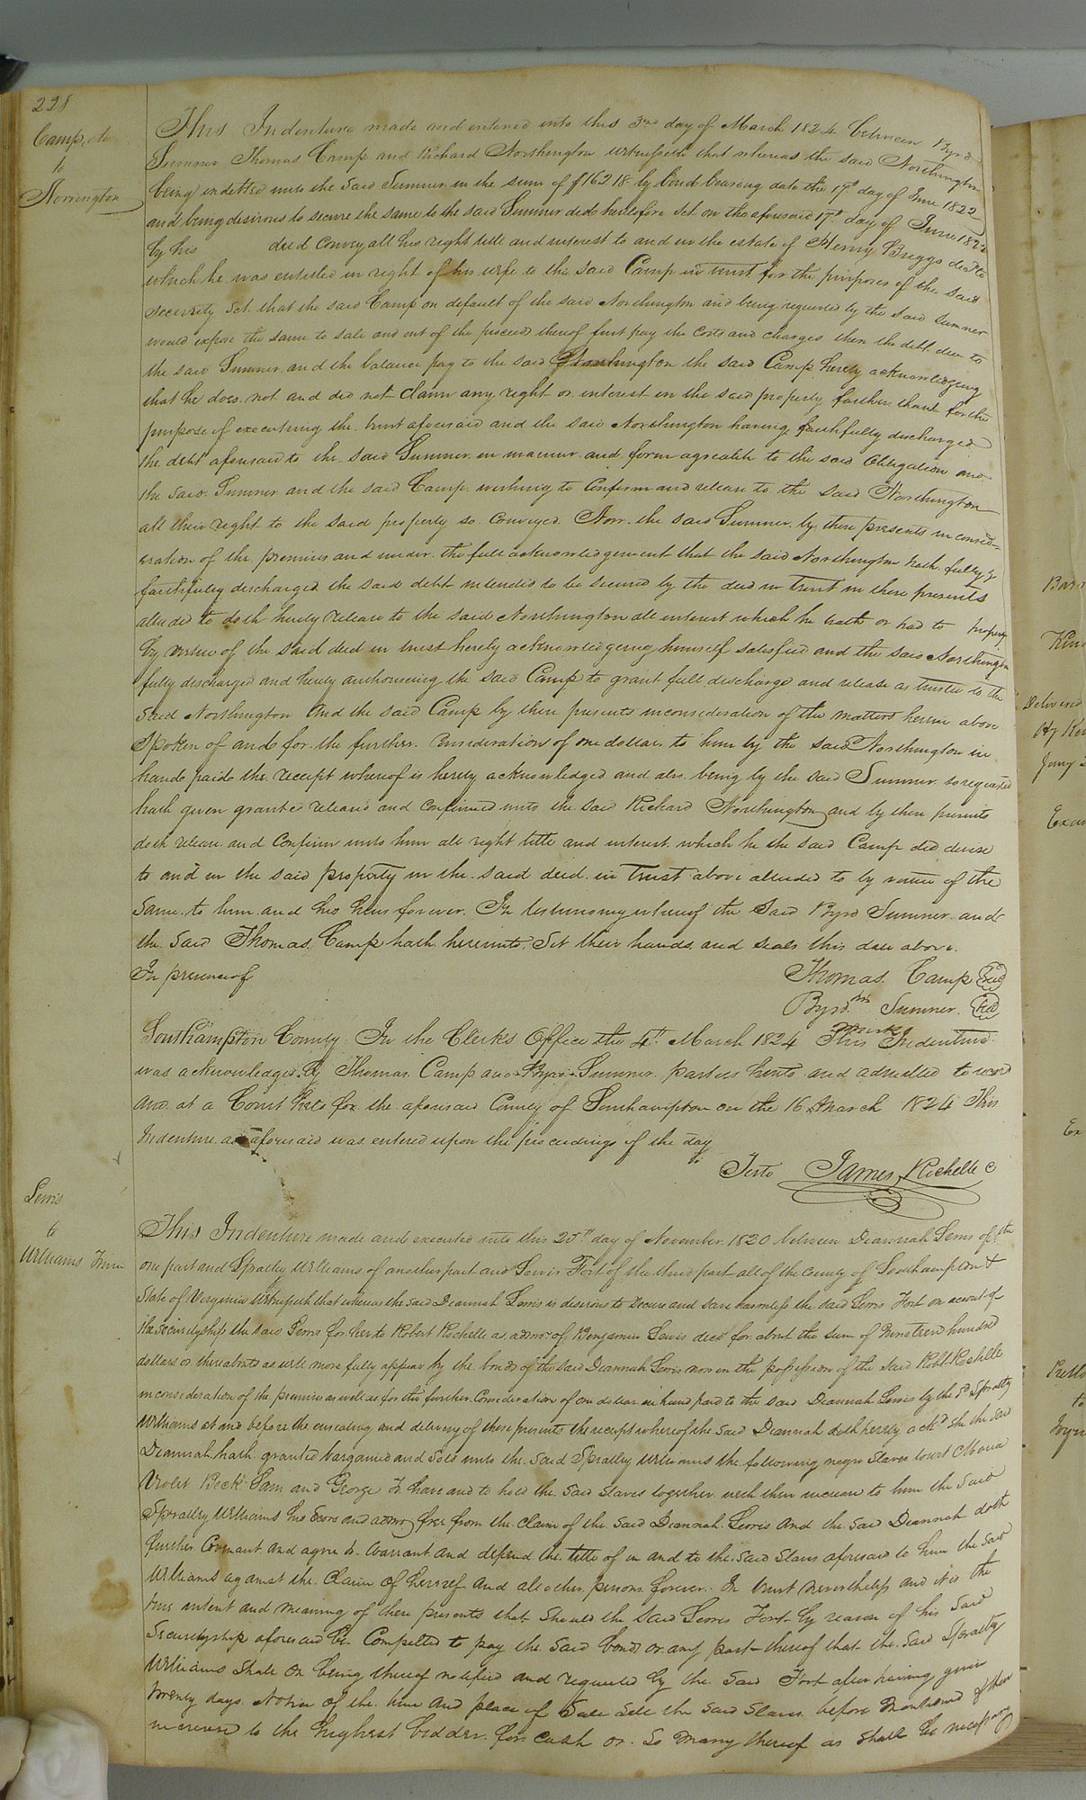 228
Camp, &c
to
Norrington
This Indenture made and entered into this 3rd day of March 1824 between Byrd
Sumner Thomas Camp and Richard Northington witnesseth that whereas the said Northington
being indebted unto the said Sumner in the sum of by bond bearing date the 17th day of June 1822
and being desirous to secure the same to the said Sumner did heretofore Set. on the aforesaid 17th day of June 1822
by his deed convey all his right title and interest to and in the estate of Henry Briggs decd to
which he was entitled in right of his wife to the said Camp in trust for the purposes of the said
security Set. that the said Camp on default of the said Northington and being requested by the said Sumner
would expose the same to sale and out of the proceeds thereof first pay the costs and charges then the debt due to
the said Sumner and the balance pay to the said Northington the said Camp hereby acknowledging
that he does not and did not claim any right or interest in the said property farther than for the
purpose of executing the trust aforesaid and the said Northington having faithfully discharged
the debt aforesaid to the said Sumner in manner and form agreeable to the said obligation and
the said Sumner and the said Camp wishing to confirm and release to the said Northington
all their right to the said property so conveyed. Now the said Sumner by these presents in consid-
eration of the premises and under the full acknowledgement that the said Northington hath fully &
faithfully discharged the said debt intended to be secured by the deed in trust in these presents
alluded to doth hereby release to the said Northington all interest which he hath or had to property
by virtue of the said deed in trust hereby acknowledging himself satisfied and the said Northington
fully discharged and hereby authorising the said Camp to grant full discharge and release as trustee to the
said Northington And the said Camp by these presents in consideration of the matters herein above
spoken of and for the further consideration of one dollar to him by the said Northington in
hand paid the receipt whereof is hereby acknowledged and also being by the said Sumner so requested
hath given granted released and confirmed unto the said Richard Northington and by these presents
doth release and confirm unto him all right title and interest which he the said Camp did derive
to and in the said property in the said deed in trust above alluded to by virtue of the
same to him and his heirs forever. In testimony whereof the said Byrd Sumner and
the said Thomas Camp hath hereunto Set their hands and seals this date above.
In presence of
Thomas Camp Seal
Byrd his Sumner Seal
mark
Southampton County In the Clerks Office the 4th March 1824 This Indenture
was acknowledged by Thomas Camp and Byrd Sumner parties hereto and admitted to record
and at a Court held for the aforesaid County of Southampton on the 16 March 1824 This
Indenture as aforesaid was entered upon the proceedings of the day
Teste James Rochelle C
Lewis
to
Williams Trus
This Indenture made and executed into this 20th day of November 1820 between Deannah Lewis of the
one part and Spratley Williams of another part and Lewis Fort of the third part all of the County of Southampton &
State of Virginia Witnesseth that whereas the said Deannah Lewis is desirous to secure and save harmless the said Lewis Fort on account of
the securityship the said Lewis for her to Robert Rochelle as admor of Benjamin Lewis decd for about the sum of Nineteen hundred
dollars or thereabouts as will more fully appear by the bonds of the said Deannah Lewis now in the possession of the said Robt. Rochelle
in consideration of the premises as well as for the further consideration of one dollar in hand paid to the said Deannah Lewis by the Sd Spratley
Williams at and before the ensealing and delivery of these presents the receipt whereof the said Deannah doth hereby ackd she the said
Deannah hath granted bargained and sold unto the said Spratley Williams the following negro slaves towit Maria
Violet Beck Sam and George To have and to hold the said slaves together with their increase to him the said
Spratley Williams his Exors and admors free from the claim of the said Deannah Lewis And the said Deannah doth
further Covenant and agree to warrant and defend the title of in and to the said slaves aforesaid to him the said
Williams against the claim of herself and all other persons forever. In trust nevertheless and it is the
true intent and meaning of these presents that should the said Lewis Fort by reason of his said
Securityship aforesaid be compelled to pay the said bonds or any part thereof that the said Spratley
Williams shall on being thereof notified and requested by the said Fort after having given
twenty days notice of the time and place of Sale sell the said slaves before mentioned & their
increase to the highest bidder for cash or so many thereof as shall be necessary
Delivered
Exam
Ex
to